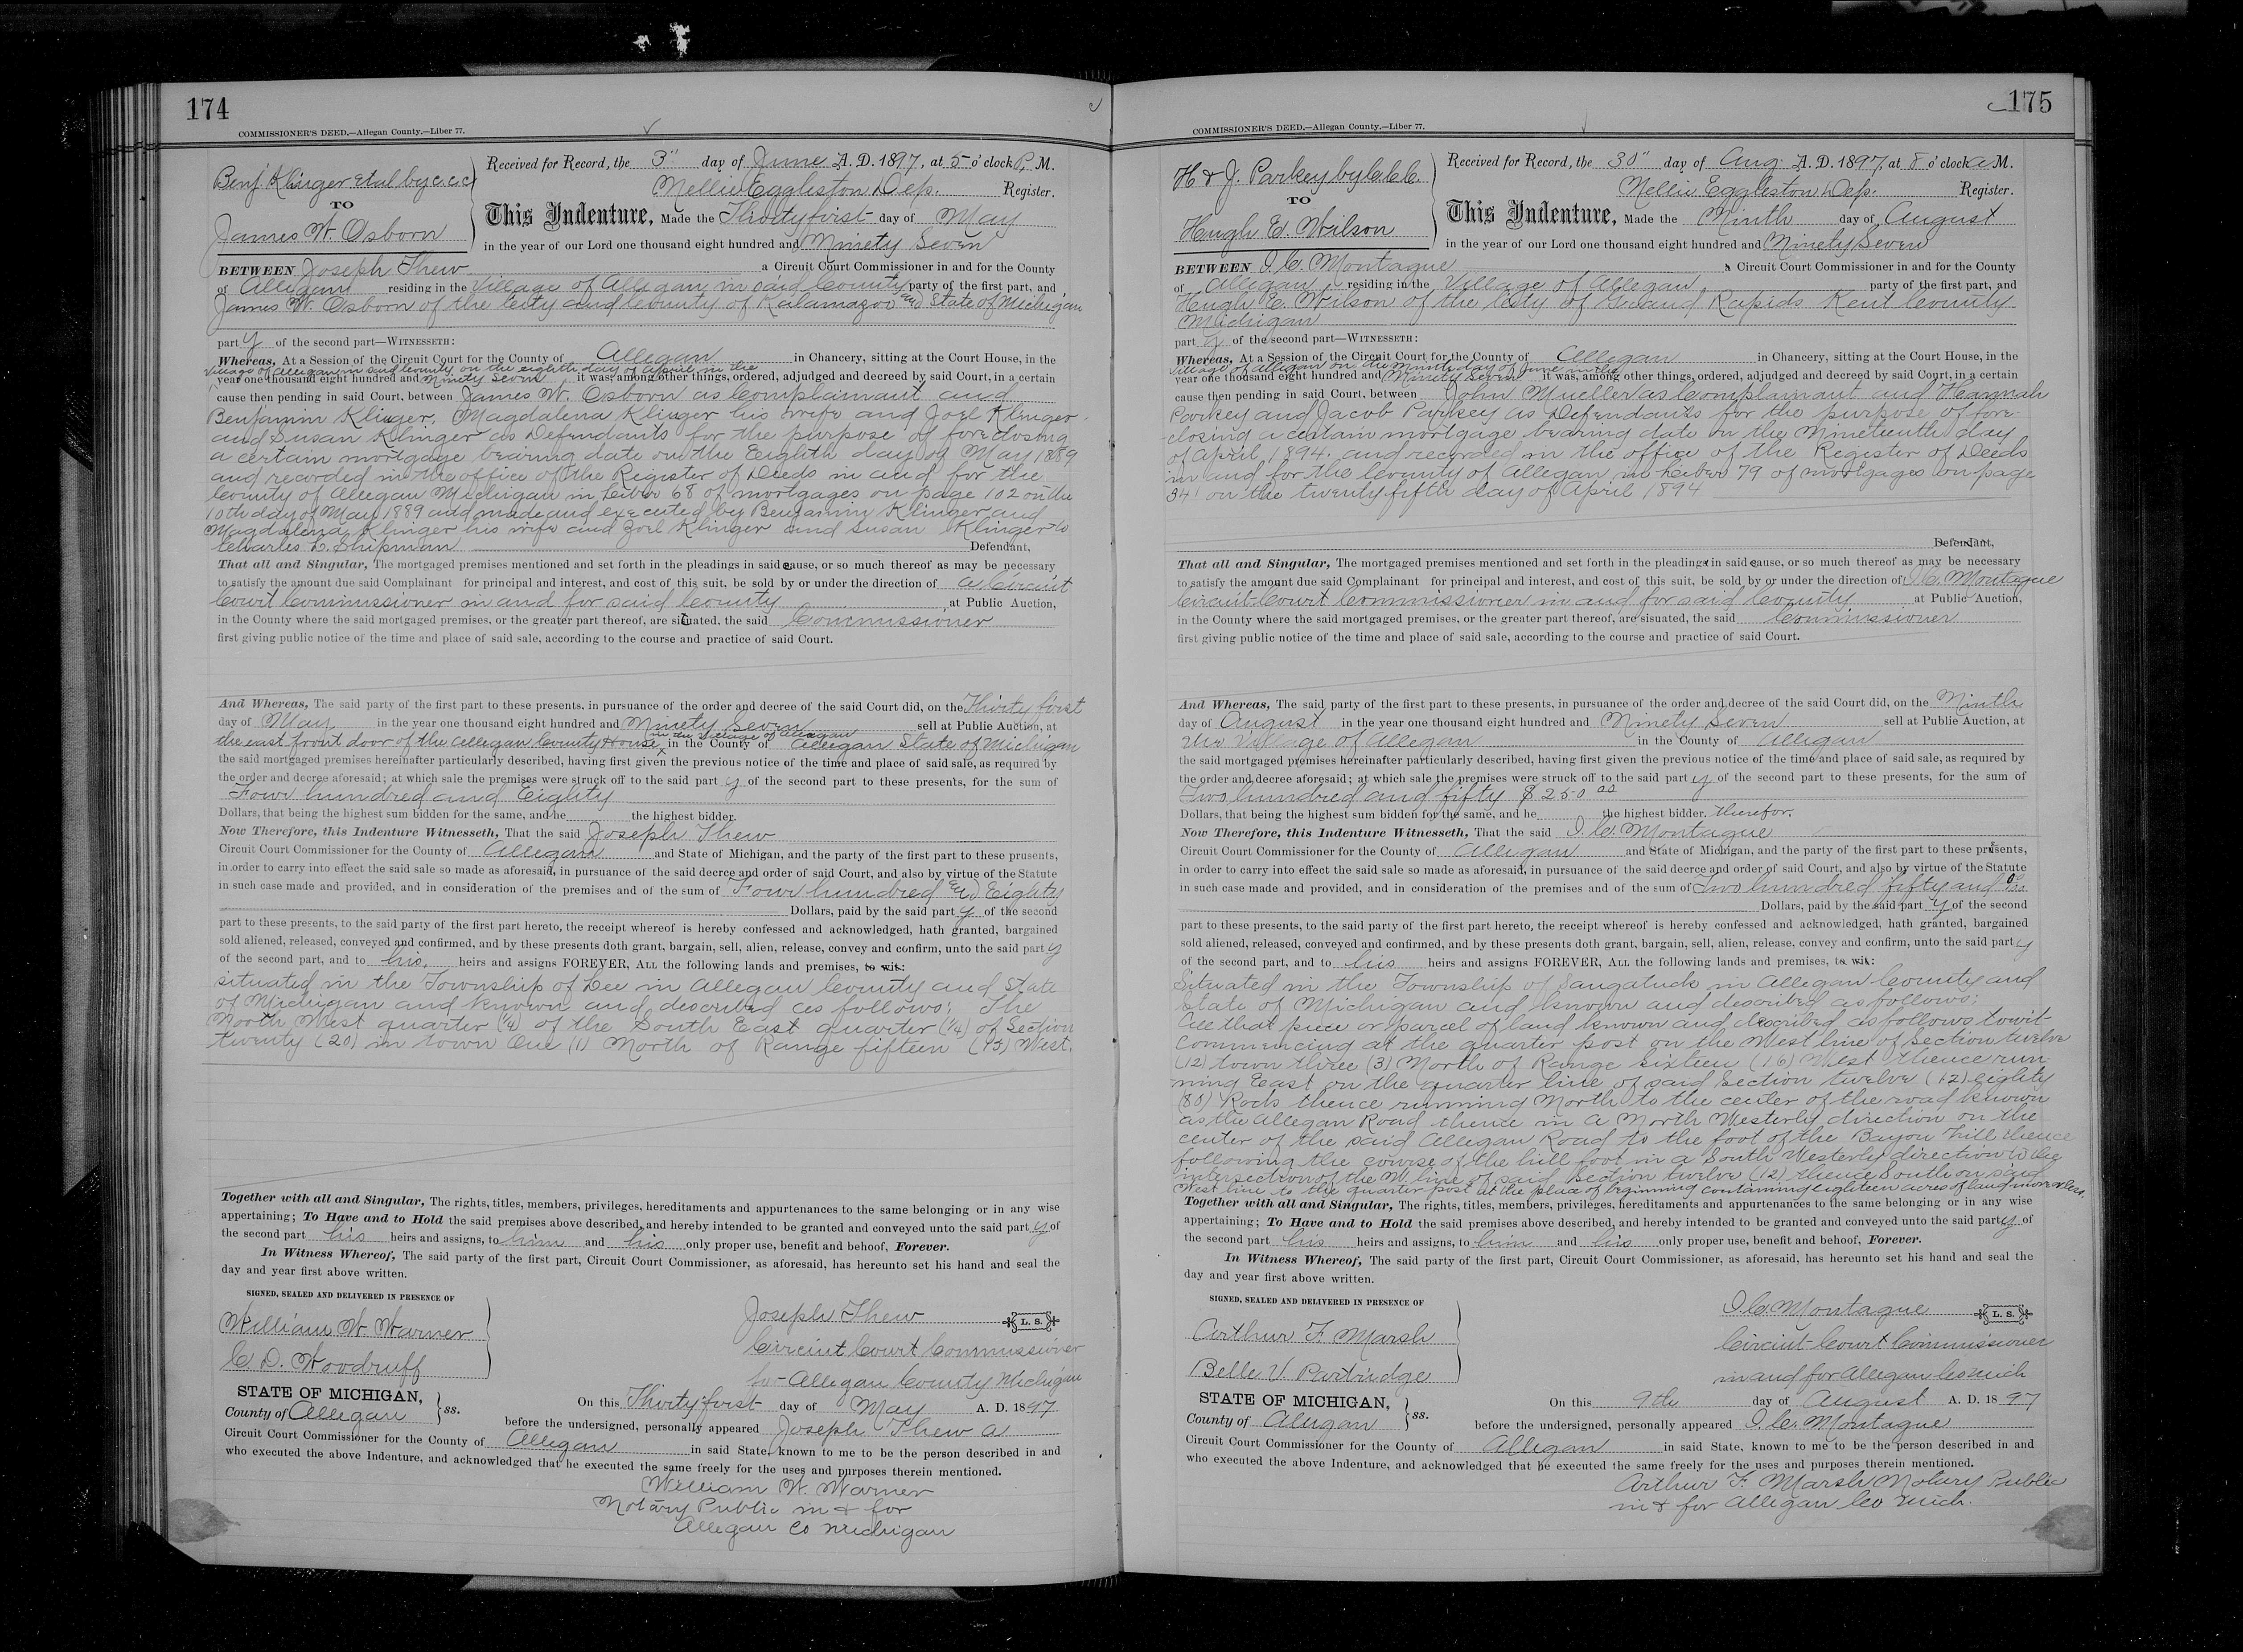 174
COMMISSIONER'S DEED.—Allegan County.—Liber 77.
Benj. Klinger et al by c.c.c
TO
James W. Osborn
Received for Record, the 3" day of June A. D. 1897, at 5 o'clock P. M.
Nellie Eggleston Dep. Register.
This Indenture, Made the Thirty first day of May
in the year of our Lord one thousand eight hundred and Ninety Seven
BETWEEN Joseph Thew a Circuit Court Commissioner in and for the County
of Allegan residing in the Village of Allegan in said County party of the first part, and
James W. Osborn of the City and County of Kalamazoo and State of Michigan
part y of the second part—WITNESSETH:
Whereas, At a Session of the Circuit Court for the County of Allegan in Chancery, sitting at the Court House, in the
Village of Allegan in said County on the eighth day of April in the
year one thousand eight hundred and ninety seven it was, among other things, ordered, adjudged and decreed by said Court, in a certain
cause then pending in said Court, between James W. Osborn as Complainant and
Benjamin Klinger, Magdalena Klinger his wife and Joel Klinger
and Susan Klinger as Defendants for the purpose of foreclosing
a certain mortgage bearing date on the Eighth day of May 1889
and recorded in the office of the Register of Deeds in and for the
County of Allegan Michigan in Liber 68 of mortgages on page 102 on the
10th day of May 1889 and made and executed by Benjamin Klinger and
Magdalena Klinger his wife and Joel Klinger and Susan Klinger to
Charles L. Shipman Defendant,
That all and Singular, The mortgaged premises mentioned and set forth in the pleadings in said cause, or so much thereof as may be necessary
to satisfy the amount due said Complainant for principal and interest, and cost of this suit, be sold by or under the direction of a Circuit
Court Commissioner in and for said County at Public Auction,
in the County where the said mortgaged premises, or the greater part thereof, are situated, the said Commissioner
first giving public notice of the time and place of said sale, according to the course and practice of said Court.
And Whereas, The said party of the first part to these presents, in pursuance of the order and decree of the said Court did, on the Thirty first
day of May in the year one thousand eight hundred and Ninety Seven sell at Public Auction, at
in the Village of Allegan
the east front door of the Allegan County House x in the County of Allegan State of Michigan
the said mortgaged premises hereinafter particularly described, having first given the previous notice of the time and place of said sale, as required by
the order and decree aforesaid; at which sale the premises were struck off to the said part y of the second part to these presents, for the sum of
Four hundred and Eighty
Dollars, that being the highest sum bidden for the same, and he the highest bidder.
Now Therefore, this Indenture Witnesseth, That the said Joseph Thew
Circuit Court Commissioner for the County of Allegan and State of Michigan, and the party of the first part to these prusents,
in order to carry into effect the said sale so made as aforesaid, in pursuance of the said decree and order of said Court, and also by virtue of the Statute
in such case made and provided, and in consideration of the premises and of the sum of Four hundred and Eighty
Dollars, paid by the said part y of the second
part to these presents, to the said party of the first part hereto, the receipt whereof is hereby confessed and acknowledged, hath granted, bargained
sold aliened, released, conveyed and confirmed, and by these presents doth grant, bargain, sell, alien, release, convey and confirm, unto the said part y
of the second part, and to his, heirs and assigns FOREVER, ALL the following lands and premises, to wit:
situated in the Township of Lee in Allegan County and State
of Michigan and known and described as follows: The
North West quarter (1/4) of the South East quarter (1/4) of Section
twenty (20) in town One (1) North of Range fifteen (15) West.
Together with all and Singular, The rights, titles, members, privileges, hereditaments and appurtenances to the same belonging or in any wise
appertaining; To Have and to Hold the said premises above described, and hereby intended to be granted and conveyed unto the said part y of
the second part his heirs and assigns, to him and his only proper use, benefit and behoof, Forever.
In Witness Whereof, The said party of the first part, Circuit Court Commissioner, as aforesaid, has hereunto set his hand and seal the
day and year first above written.
SIGNED, SEALED AND DELIVERED IN PRESENCE OF
William W. Warner
C. D. Woodruff
Joseph Thew L. S.
Circuit Court Commissioner
for Allegan County Michigan
STATE OF MICHIGAN,
County of Allegan ss.
On this Thirty first day of May A. D. 1897
before the undersigned, personally appeared Joseph Thew a
Circuit Court Commissioner for the County of Allegan in said State, known to me to be the person described in and
who executed the above Indenture, and acknowledged that he executed the same freely for the uses and purposes therein mentioned.
William W. Warner
Notary Public in & for
Allegan Co Michigan
175
COMMISSIONER'S DEED.—Allegan County.—Liber 77.
H & J. Parkey by C.C.C.
TO
Hugh E. Wilson
Received for Record, the 30" day of Aug. A. D. 1897, at 8 o'clock a M.
Nellie Eggleston Dep. Register.
This Indenture, Made the Ninth day of August
in the year of our Lord one thousand eight hundred and Ninety Seven
BETWEEN I. C. Montague a Circuit Court Commissioner in and for the County
of Allegan residing in the Village of Allegan party of the first part, and
Hugh E. Wilson of the City of Grand Rapids Kent County
Michigan
part y of the second part—WITNESSETH:
Whereas, At a Session of the Circuit Court for the County of Allegan in Chancery, sitting at the Court House, in the
Village of Allegan on the Ninth day of June in the
year one thousand eight hundred and Ninety Seven it was, among other things, ordered, adjudged and decreed by said Court, in a certain
cause then pending in said Court, between John Mueller as Complainant and Hannah
Parkey and Jacob Parkey as Defendants for the purpose of fore-
closing a certain mortgage bearing date on the Nineteenth day
of April, 1894. and recorded in the office of the Register of Deeds
in and for the County of Allegan in Liber 79 of mortgages on page
341 on the twenty fifth day of April 1894
Defendant,
That all and Singular, The mortgaged premises mentioned and set forth in the pleadings in said cause, or so much thereof as may be necessary
to satisfy the amount due said Complainant for principal and interest, and cost of this suit, be sold by or under the direction of I. C. Montague
Circuit Court Commissioner in and for said County at Public Auction,
in the County where the said mortgaged premises, or the greater part thereof, are sisuated, the said Commissioner
first giving public notice of the time and place of said sale, according to the course and practice of said Court.
And Whereas, The said party of the first part to these presents, in pursuance of the order and decree of the said Court did, on the Ninth
day of August in the year one thousand eight hundred and Ninety Seven sell at Public Auction, at
the Village of Allegan in the County of Allegan
the said mortgaged premises hereinafter particularly described, having first given the previous notice of the time and place of said sale, as required by
the order and decree aforesaid; at which sale the premises were struck off to the said part y of the second part to these presents, for the sum of
Two hundred and fifty $250 00
Dollars, that being the highest sum bidden for the same, and he the highest bidder. therefor.
Now Therefore, this Indenture Witnesseth, That the said I. C. Montague
Circuit Court Commissioner for the County of Allegan and State of Michigan, and the party of the first part to these presents,
in order to carry into effect the said sale so made as aforesaid, in pursuance of the said decree and order of said Court, and also by virtue of the Statute
in such case made and provided, and in consideration of the premises and of the sum of Two hundred fifty and
Dollars, paid by the said part y of the second
part to these presents, to the said party of the first part hereto, the receipt whereof is hereby confessed and acknowledged, hath granted, bargained
sold aliened, released, conveyed and confirmed, and by these presents doth grant, bargain, sell, alien, release, convey and confirm, unto the said part y
of the second part, and to his heirs and assigns FOREVER, ALL the following lands and premises, to wit:
Situated in the Township of Saugatuck in Allegan County and
State of Michigan and known and described as follows;
All that piece or parcel of land known and described as follows towit
Commencing at the quarter post on the West line of Section twelve
(12) town three (3) North of Range sixteen (16) West thence run-
ning East on the quarter line of said Section twelve (12) eighty
(80) Rods thence running North to the center of the road known
as the Allegan Road thence in a North Westerly direction on the
center of the said Allegan Road to the foot of the Bayou hill thence
following the course of the hill foot in a South Westerly direction to the
intersection of the W. line of said Section twelve (12) thence South on said
West line to the quarter post at the place of beginning containing eighteen acres of land more or less.
Together with all and Singular, The rights, titles, members, privileges, hereditaments and appurtenances to the same belonging or in any wise
appertaining; To Have and to Hold the said premises above described, and hereby intended to be granted and conveyed unto the said part y of
the second part his heirs and assigns, to him and his only proper use, benefit and behoof, Forever.
In Witness Whereof, The said party of the first part, Circuit Court Commissioner, as aforesaid, has hereunto set his hand and seal the
day and year first above written.
SIGNED, SEALED AND DELIVERED IN PRESENCE OF
Arthur F. Marsh
Belle V. Partridge
I. C. Montague L. S.
Circuit Court Commissioner
in and for Allegan Co Mich
STATE OF MICHIGAN,
County of Allegan ss.
On this 9th day of August A. D. 1897
before the undersigned, personally appeared I. C. Montague
Circuit Court Commissioner for the County of Allegan in said State, known to me to be the person described in and
who executed the above Indenture, and acknowledged that he executed the same freely for the uses and purposes therein mentioned.
Arthur F. Marsh Notary Public
in & for Allegan Co Mich.